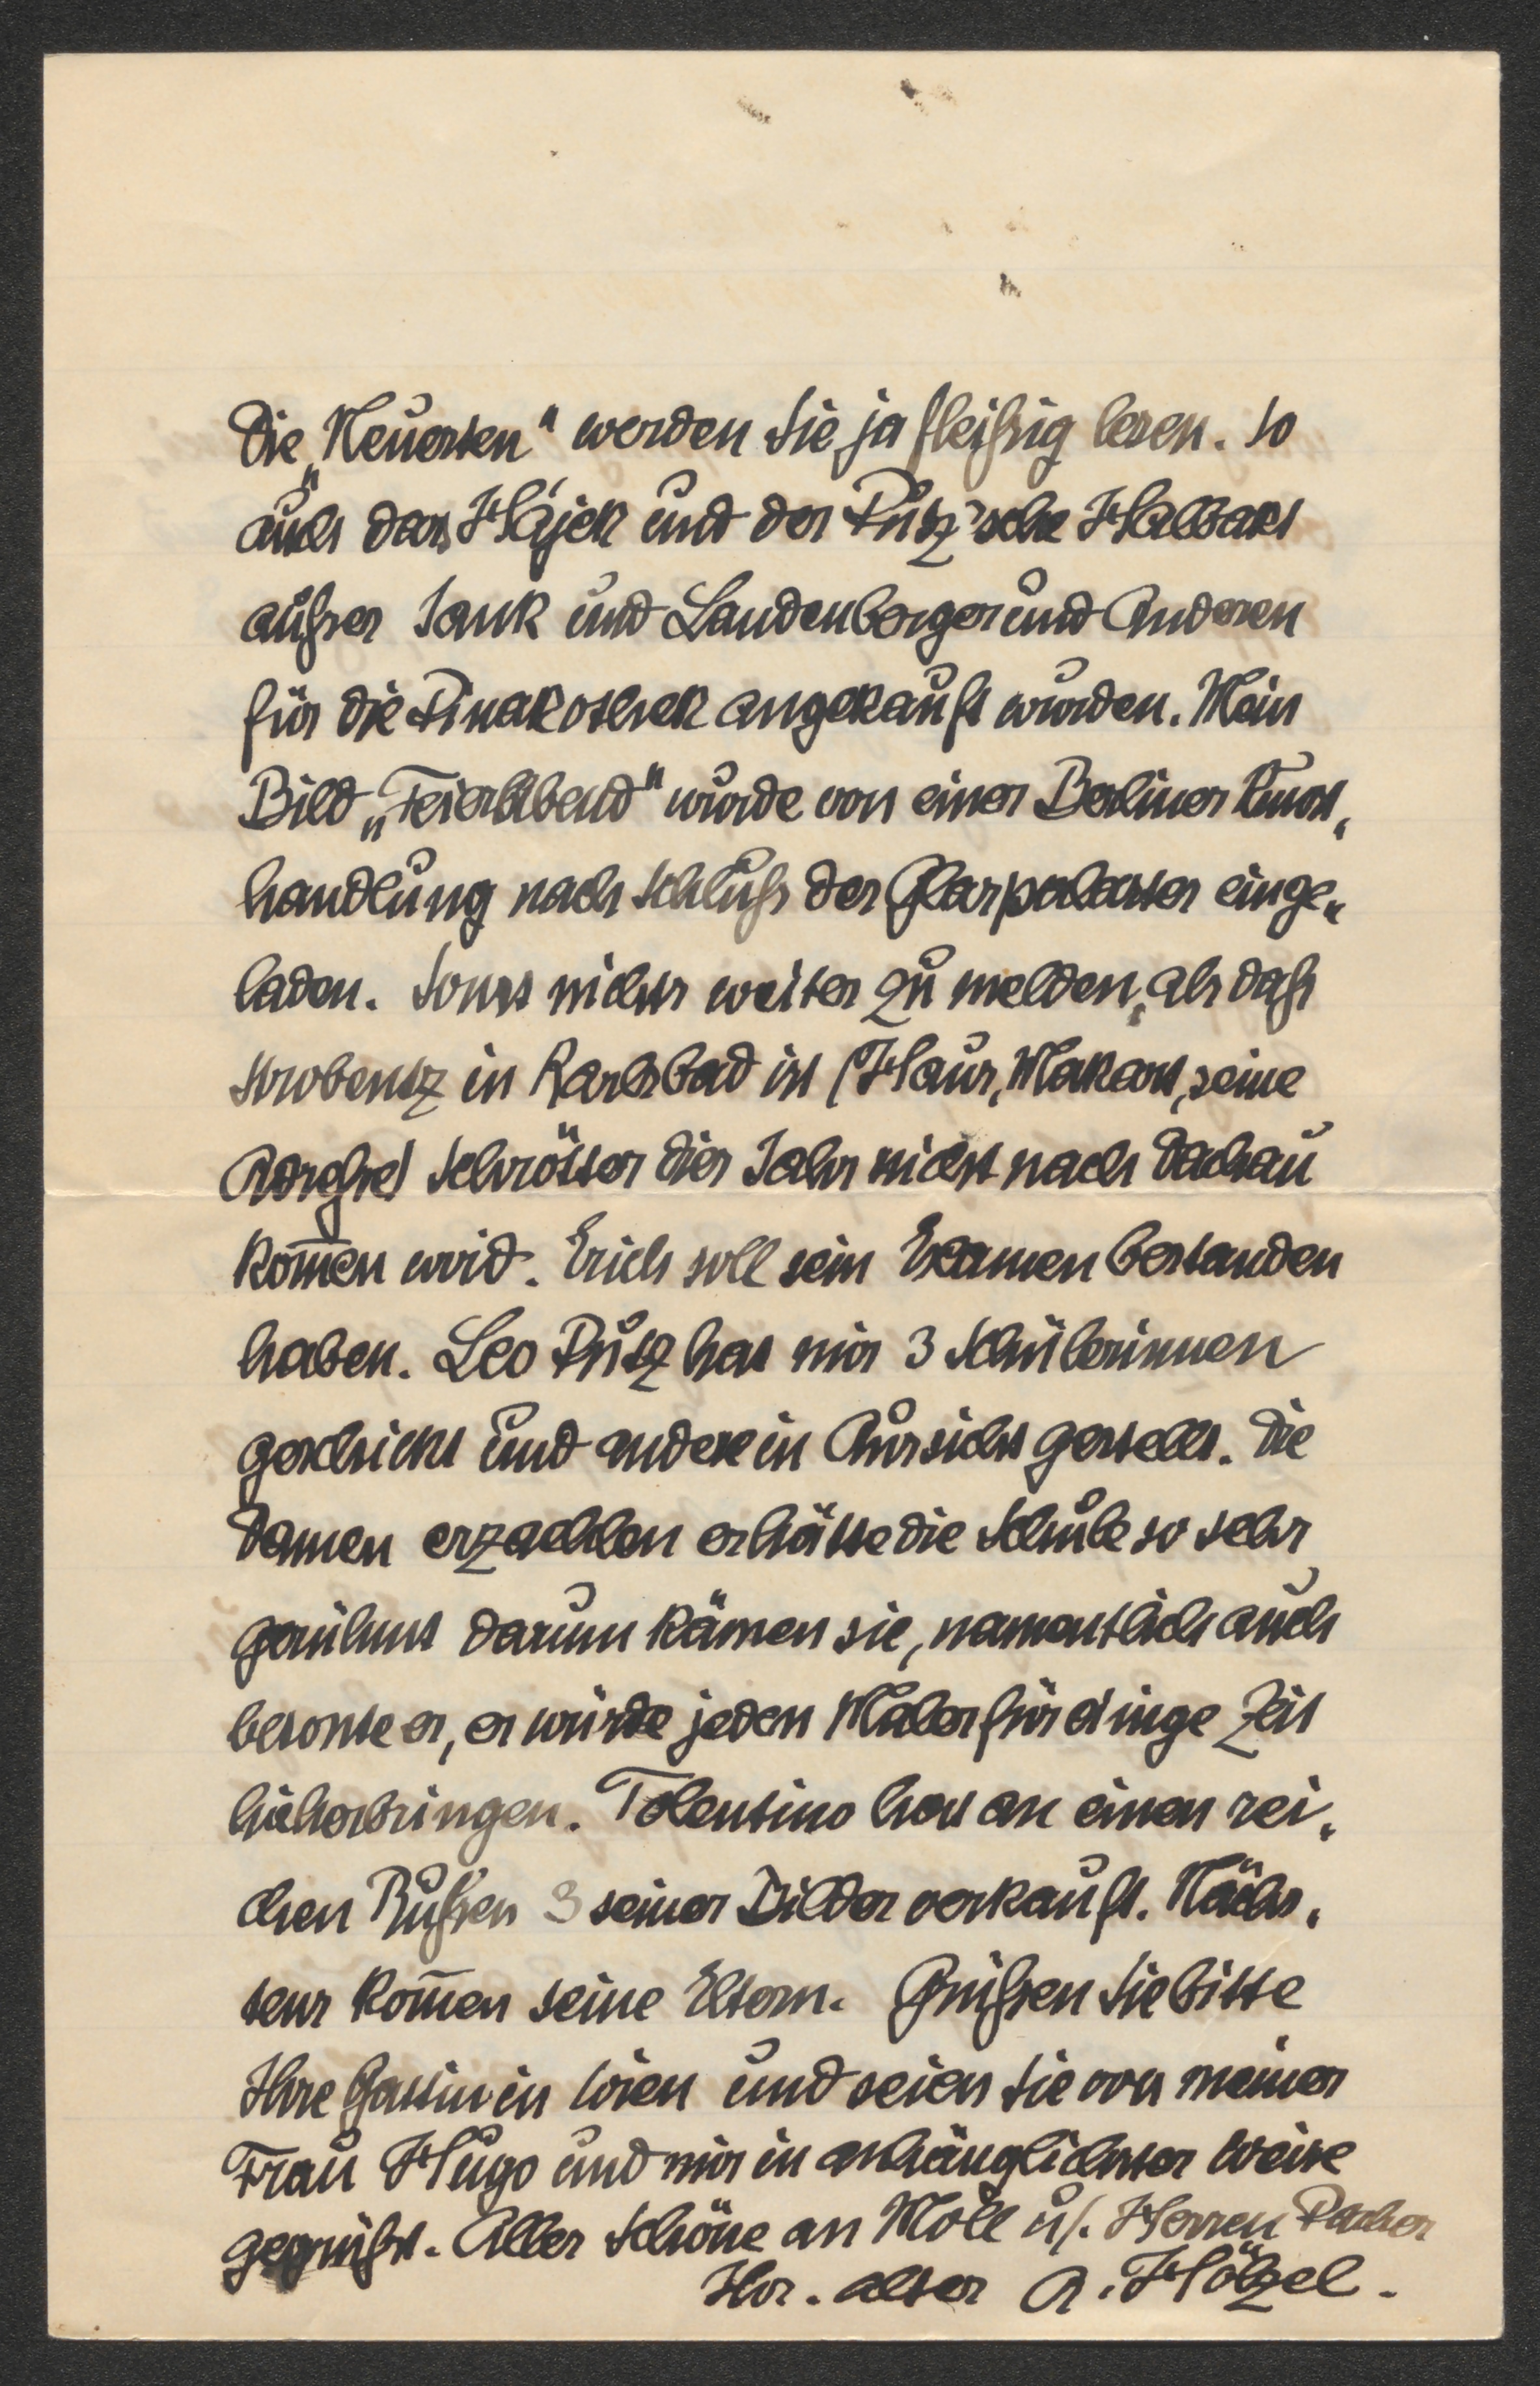 Die „Neuesten“ werden Sie ja fleißig lesen. So
auch dass Hájek und der Putz'sche Halbakt
außer Jank und Landenberger und Anderen
für die Pinakothek angekauft wurden. Mein
Bild „Feierabend“ wurde von einer Berliner Kunst„
handlung nach Schluß des Glaspalastes einge„
laden. Sonst nichts weiter zu melden, als daß
Strobentz in Karlsbad ist (Haus, Makart, seine
Adresse) Schrötter dies Jahr nicht nach Dachau
kom̅en wird. Erich soll sein Examen bestanden
haben. Leo Putz hat mir 3 Schülerinnen
geschickt und andere in Aussicht gestellt. Die
Damen erzaehlen er hätte die Schule so sehr
gerühmt darum kämen sie, namentlich auch
betonte er, er würde jeden Maler für einige Zeit
hieherbringen. Tolentino hat an einen rei„
chen Rußen 3 seiner Bilder verkauft. Nächs„
tens kom̅en seine Eltern. Grüßen Sie bitte
Ihre Gattin in Wien und seien Sie von meiner
Frau Hugo und mir in anhänglichster Weise
gegrüßt. Alles Schöne an Moll u/. Herren Pacher
Ihr. alter A. Hölzel.